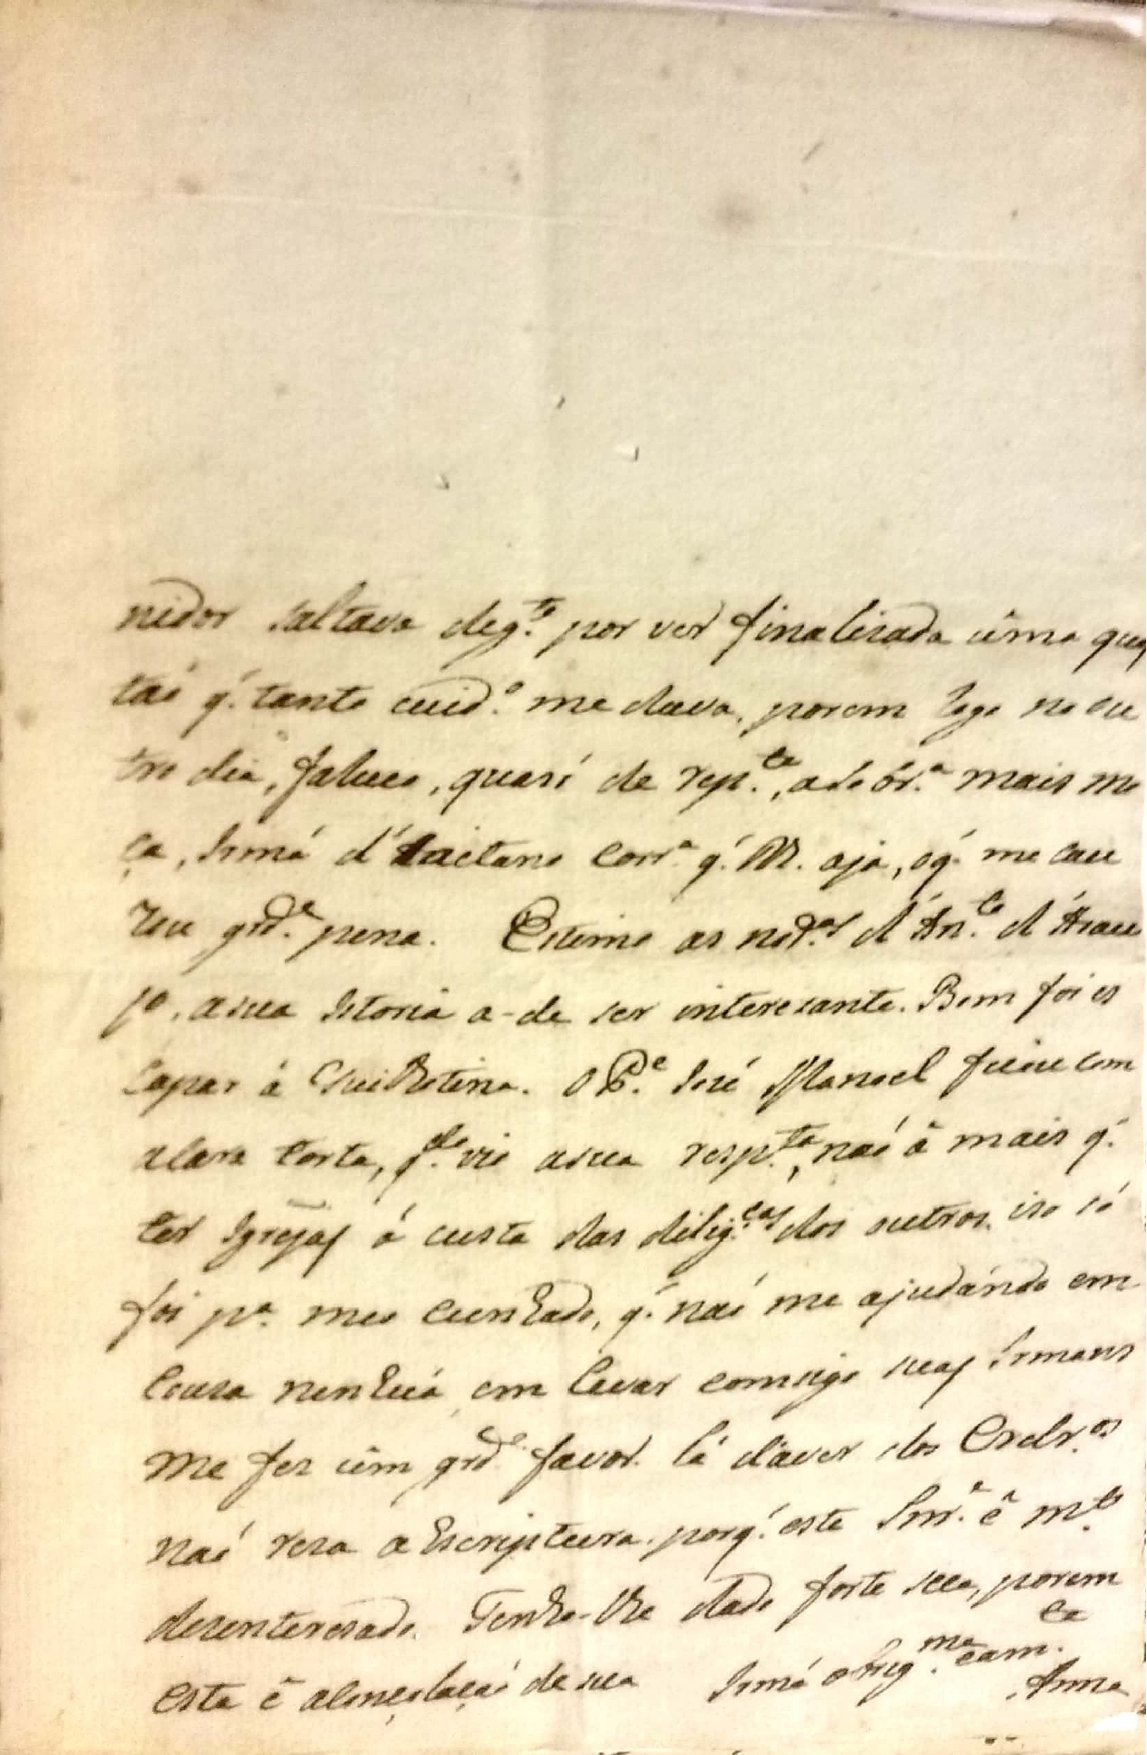 nidor saltava deg.to por ver finalisada ûma ques
taõ q́. tanto cuid.o me dava, porem logo no ou
tro dia, faluco, quasí de rep.te, a Sobr.a mais mo
ça, Irmá d'Caietano Corr.a q́. M. aja, oq́. me cau
zou grd.e pena. Estimo as not.as d'An.to d'Arau
jo, asua Istoria a-de ser interesante. Bom foi es
capar á Guilhotina. O P.e José Manoel ficou com
a cara torta, q.do vio asua resp.ta, naõ â mais q́.
ter Igrejas á custa das dilig.cas dos outros, iso só
foi p.a meo cunhado, q́. naõ me ajudándo em
couza nenhuá, em levar comsigo suas Irmans
me fez ûm grd.e favor. Lá d'aver dos Crelr.os
naõ reza a Escriptura, porq́. este Snr.e ê m.to
dezenteresado. Tenho-lhe dado forte seca, porem
esta ê a de sua Irmá obrig.ma e am.ta
Anna